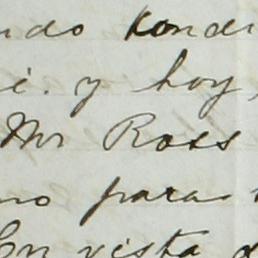 ndo kondi
i. y hoy,
Mr Ross
no para
En vista d